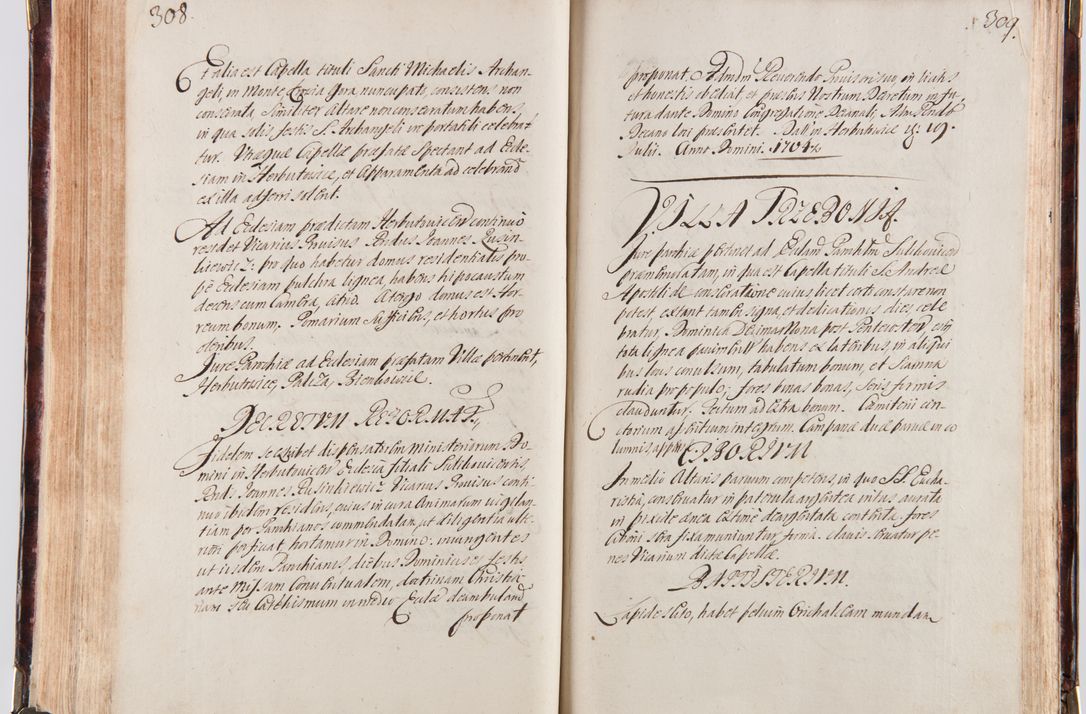 308.
Et alia est Capella tituli Sancti Michaelis Archan-
geli, in Monte Gora nuncupato, consistens non
consecrata, Similiter Altare non consecratum habens,
in qua solis festis S. Archangeli in portatili celebrat
tur. Utraeque Capellae praefatae Spectant ad Eccle-
siam in Herbutowice, et Apparamenta ad celebrand
ex illa adferri solent.
Ad Ecclesiam praedictam Herbutovicen continuò
residet Vicarius Provisus Rndus Joannes Rusin-
kiewicz: pro quo habetur domus residentialis pro-
pè Ecclesiam pulchra lignea, habens hipocaustum
decens cum Camera, atrio. A tergo domus est Hor-
reum bonum. Pomarium sufficiens, et hortus pro
oleribus.
Jure Parochiae ad Ecclesiam praefatam Villae pertinent,
Herbutowice, Paliza, Bienkowice.
DECRETUM REFORMAE.
Fidelem se exhibet dispensatorem Ministeriorum Do-
mini in Herbutovicen Ecclesia filiali Sulkovicensis
Rndus Joannes Rusinkiewicz Vicarius Provisus conti-
nuò ibidem residens, cuius in cura Animarum vigilan-
tiam per Parochianos commendatam, ut diligentia ulte-
riori perficiat, hortamur in Domino: iniungentes
ut iisdem Parochianis diebus Dominicis et festis
ante Missam Conventualem, doctrinam Christia-
nam seu Catéchismum in medio Ecclae deambuland
proponat
309.
proponat. Admdm Reverendo Provisori suo, in licitis
et honestis obediat et praesens Nostrum Decretum in fu-
tura dante Domino Congregatione Decanali, Adm Rndo
Decano loci praesentet. Datt in Herbutowice d: 19.
Julii. Anno Domini. 1704.
VILLA TRZEBONIA.
Jure parochiae pertinet ad Ecclam Parochlem Sulkovicen
praeambulatam, in qua est Capella tituli S. Andreae
Apostoli de consecratione cuius licet certi constare non
potest, extant tamen signa, et dedicationis dies cele
bratur Dominica Decima Nona post Pentecosten, est
tota lignea pavimentum habens ex lateribus, in aliqui
bus locis convulsum, tabulatum bonum, et Scamna
rudia pro populo: fores binas bonas, seris firmis
clauduntur. Tectum ad extra bonum. Caemiterii cin-
ctorium asseribus integrum. Campanae duae parvae in co
lumnis appensae
CIBORIUM
In medio Altaris parvum competens, in quo SS. Eucha-
ristia, conservatur in patenula argentea intus aurata
in pixide aenea extimè deargentata contenta. fores
Ciborii sera fixa muniuntur firma. clavis servatur pe-
nes Vicarium dictae Capellae.
BAPTISTERIUM.
Lapide secto, habet pelvim Orichalceam mundam